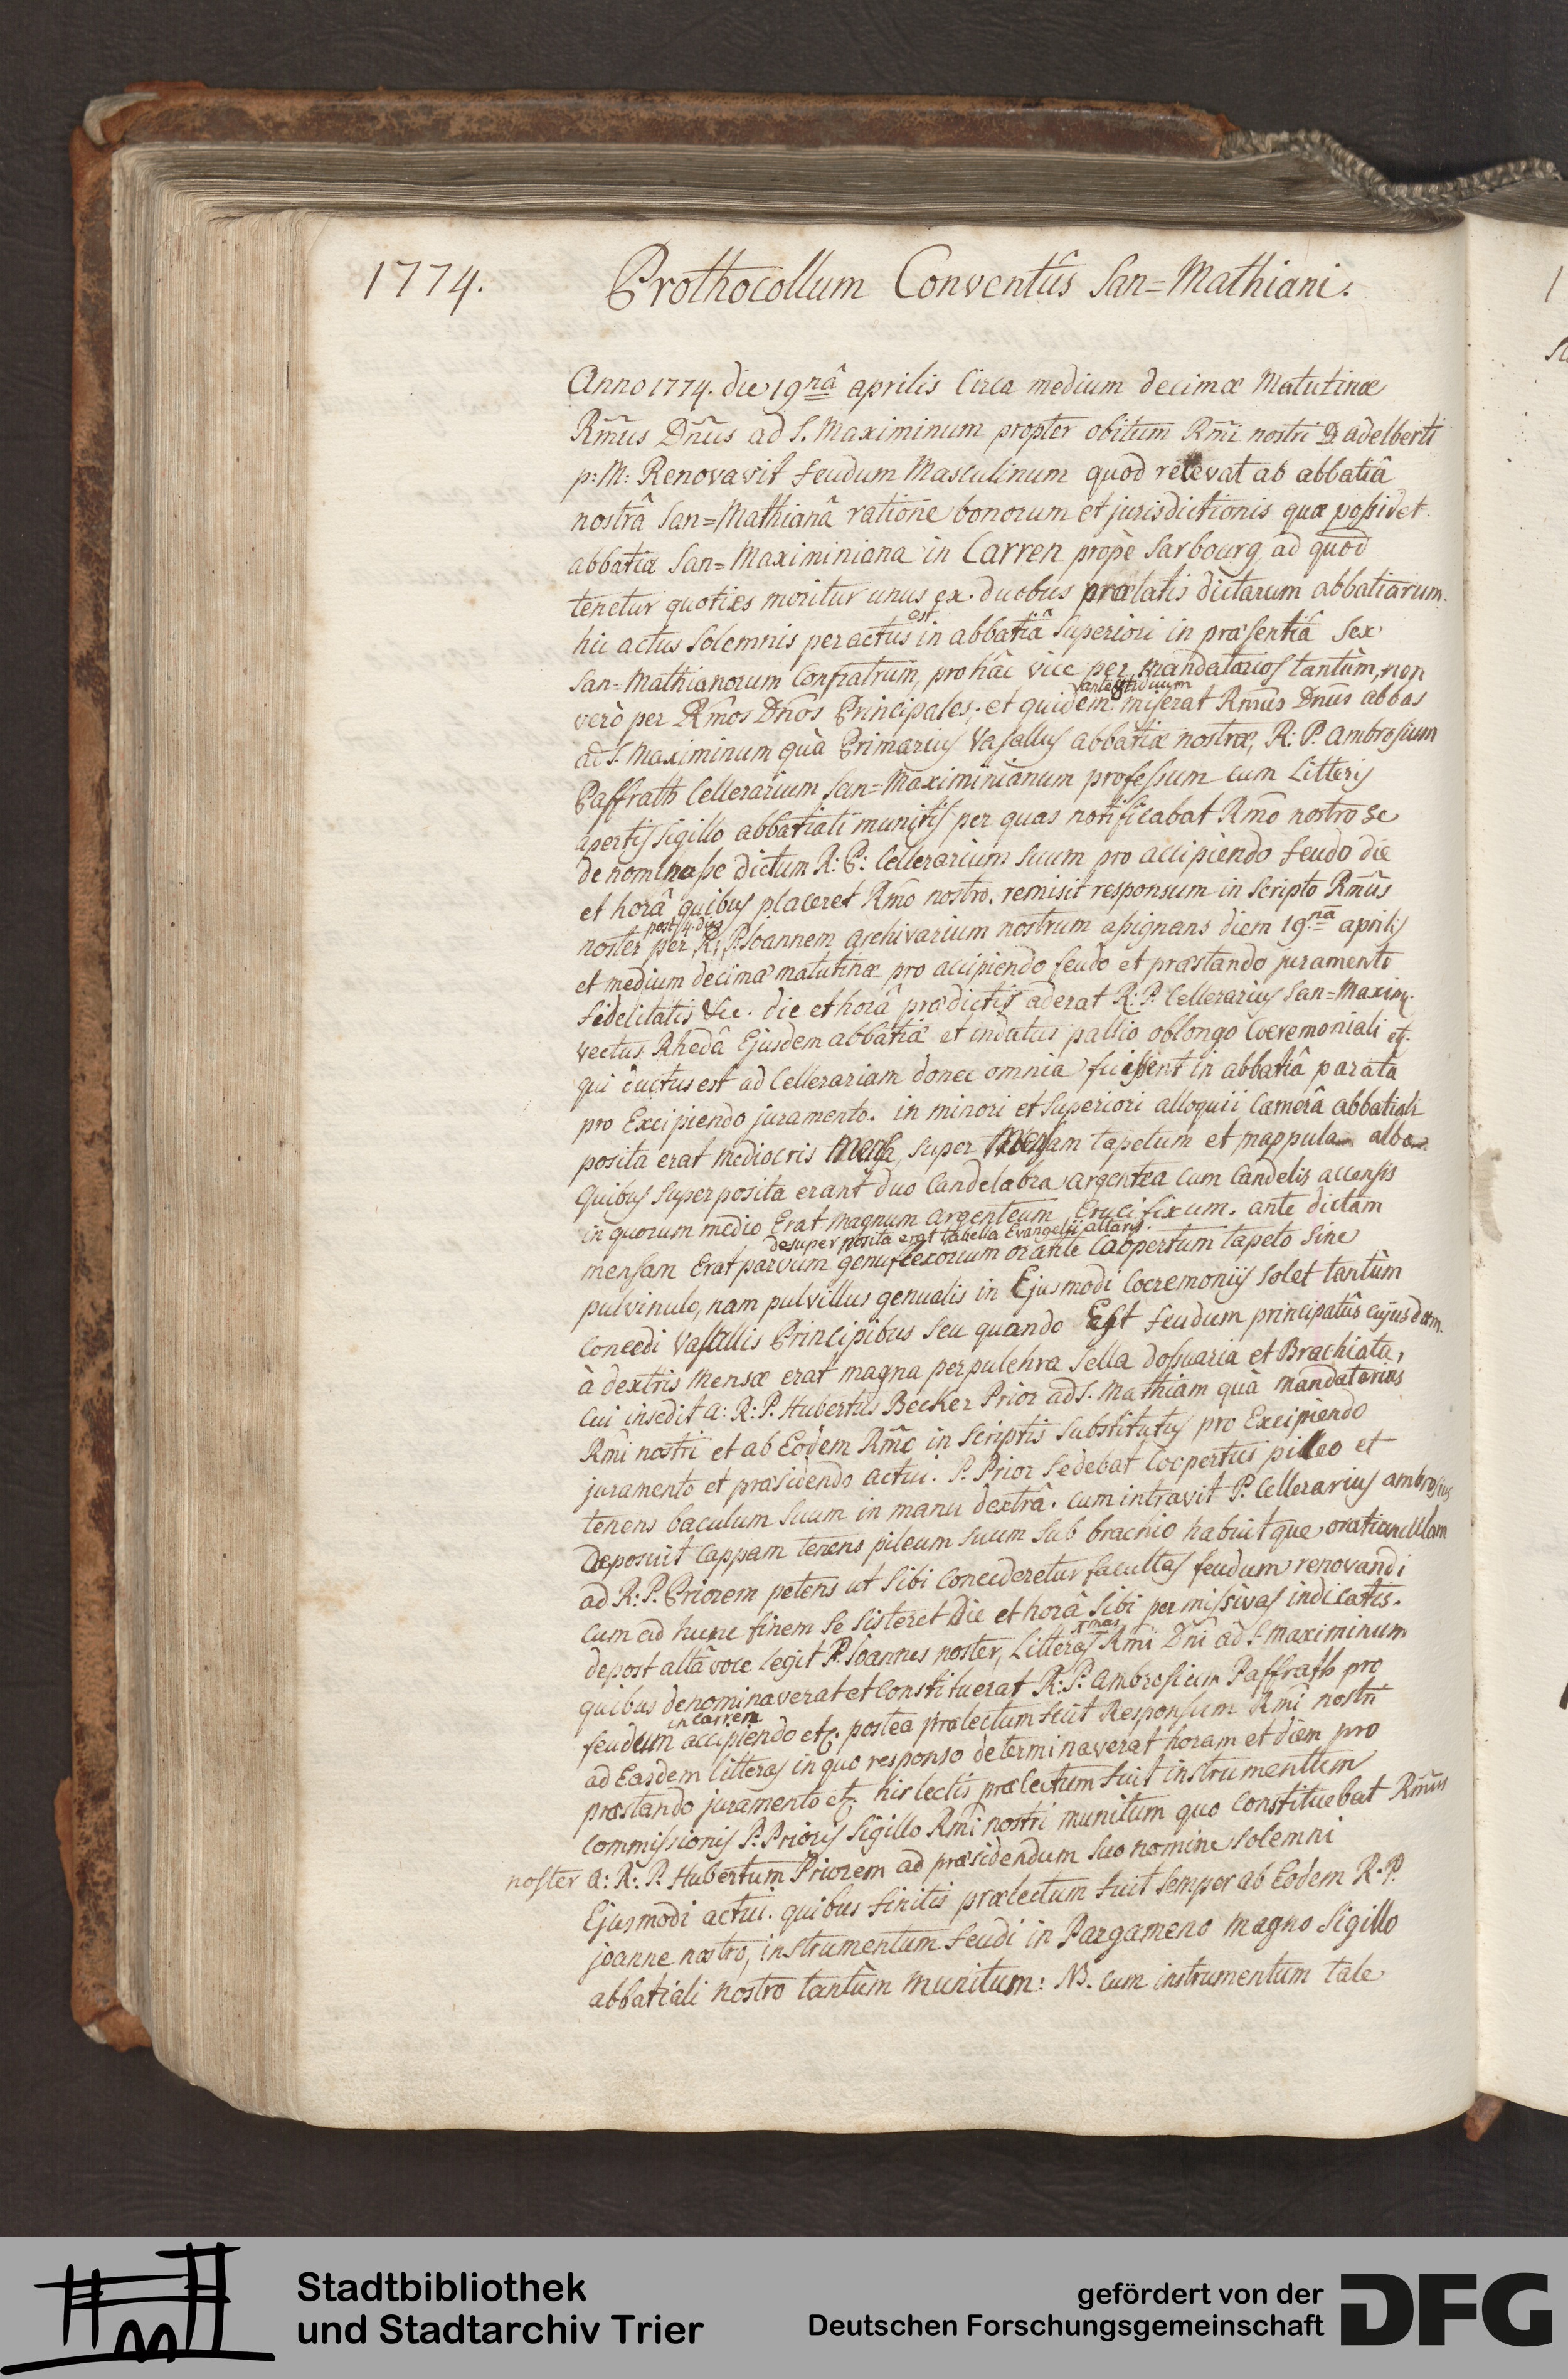 1774.
Prothocollum Conventûs San=Mathiani.
Anno 1774. die 19nâ aprilis Circa medium decimæ Matutinæ
Rm̃us Dñus ad S. Maximinum propter obitum Rm̃i nostri D. adelberti
p: M: Renovavit feudum Masculinum quod relevat ab abbatiâ
nostrâ San=Mathianâ ratione bonorum et jurisdictionis quæ possidet
abbatia San=Maximiniana in Carren propè Sarbourg ad quod
tenetur quoties moritur unus ex duobus prælatis dictarum abbatiarum.
est
hic actus Solemnis peractus in abbatiâ Superiori in præsentiâ Sex
San=Mathianorum Confratrum, pro hâc vice per mandatarios tantùm, non
ante 8triduum
verò per Rm̃os Dños Principales; et quidem miserat Rm̃us Dñus abbas
ad S. Maximinum quà Primarius Vasallus abbatiæ nostræ, R: P. ambrosium
Paffrath Cellerarium San=Maximinianum professum cum Litteris
apertis sigillo abbatiali munitis per quas notificabat Rm̃o nostro se
denominasse dictum R: P: Cellerarium suum pro accipiendo feudo die
et horâ quibus placeret Rm̃o nostro. remisit responsum in Scripto Rm̃us
post 4. dies
noster per R: P. Joannem archivarium nostrum assignans diem 19nã aprilis
et medium decimæ matutinæ pro accipiendo feudo et præstando juramento
fidelitatis &c. die et horâ prædictis aderat R: P. Cellerarius San=Maxim.
vectus Rhedâ Ejusdem abbatiæ et indutus pallio oblongo Coeremoniali etc.
qui ductus est ad Cellerariam donec omnia fuissent in abbatiâ parata
pro Excipiendo juramento. in minori et Superiori alloquii Camerâ abbatiali
posita erat mediocris Mensa, super Mensam tapetum et mappula alba
Quibus Superposita erant duo Candelabra argentea cum Candelis accensis
in quorum medio Erat magnum argenteum Crucifixum. ante dictam
desuper posita erat tabella Evangelii altaris.
mensam Erat parvum genuflexorium orante Coopertum tapeto Sine
pulvinulo, nam pulvillus genualis in Ejusmodi Coeremoniis Solet tantùm
concedi Vasallis Principibus Seu quando Est feudum principatûs cujusdam.
à dextris Mensæ erat magna perpulchra Sella dossuaria et Brachiata,
cui insedit a: R: P. Hubertus Becker Prior ad S. Mathiam quà mandatarius
Rm̃i nostri et ab Eodem Rm̃o in Scriptis Substitutus pro Excipiendo
juramento et præsidendo actui. P. Prior Sedebat Coopertus pileo et
tenens baculum Suum in manu dextrâ. cum intravit P. Cellerarius ambrosius
Deposuit Cappam tenens pileum suum sub brachio habuitque oratiunculam
ad R: P. Priorem petens ut Sibi Concederetur facultas feudum renovandi
cum ad hunc finem Se Sisteret Die et horâ Sibi per missivas indicatis.
depost altâ voce legit P. Joannes noster, Litteras Rm̃i Dñi ad S. Maximinum
quibus denominaverat et Constituerat R: P. Ambrosium Paffrath pro
in Carren
feudum accipiendo etc. postea prælectum fuit Responsum Rm̃i nostri
ad Easdem litteras in quo responso determinaverat horam et diem pro
præstando juramento etc. his lectis prælectum fuit instrumentum
Commissionis P. Prioris Sigillo Rm̃i nostri munitum quo Constituebat Rm̃us
noster a: R: P. Hubertum Priorem ad præsidendum suo nomine Solemni
Ejusmodi actui. quibus finitis prælectum fuit Semper ab Eodem R. P.
joanne nostro, instrumentum feudi in Pargameno Magno Sigillo
abbatiali nostro tantùm munitum: NB. cum instrumentum tale
Stadtbibliothek
und Stadtarchiv Trier
gefördert von der
Deutschen Forschungsgemeinschaft
DFG